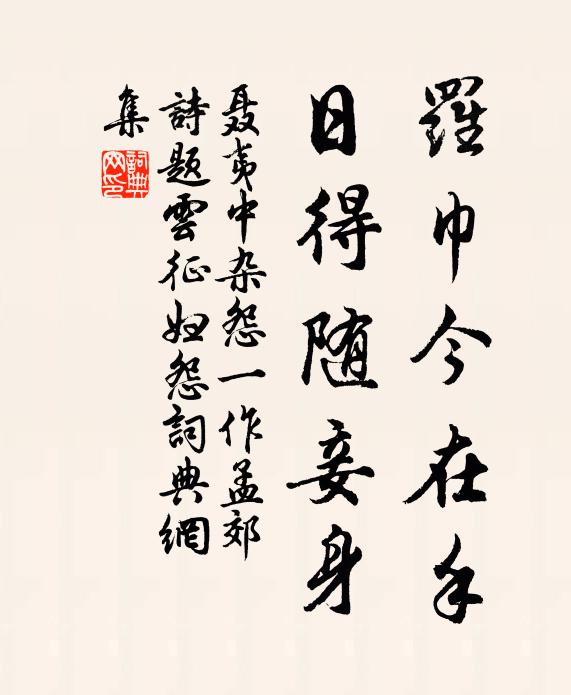 羅巾今在手
日得随妾身
聂夷中杂怨一作孟郊
詩題雲征婦怨詞典網
集
詞典網印